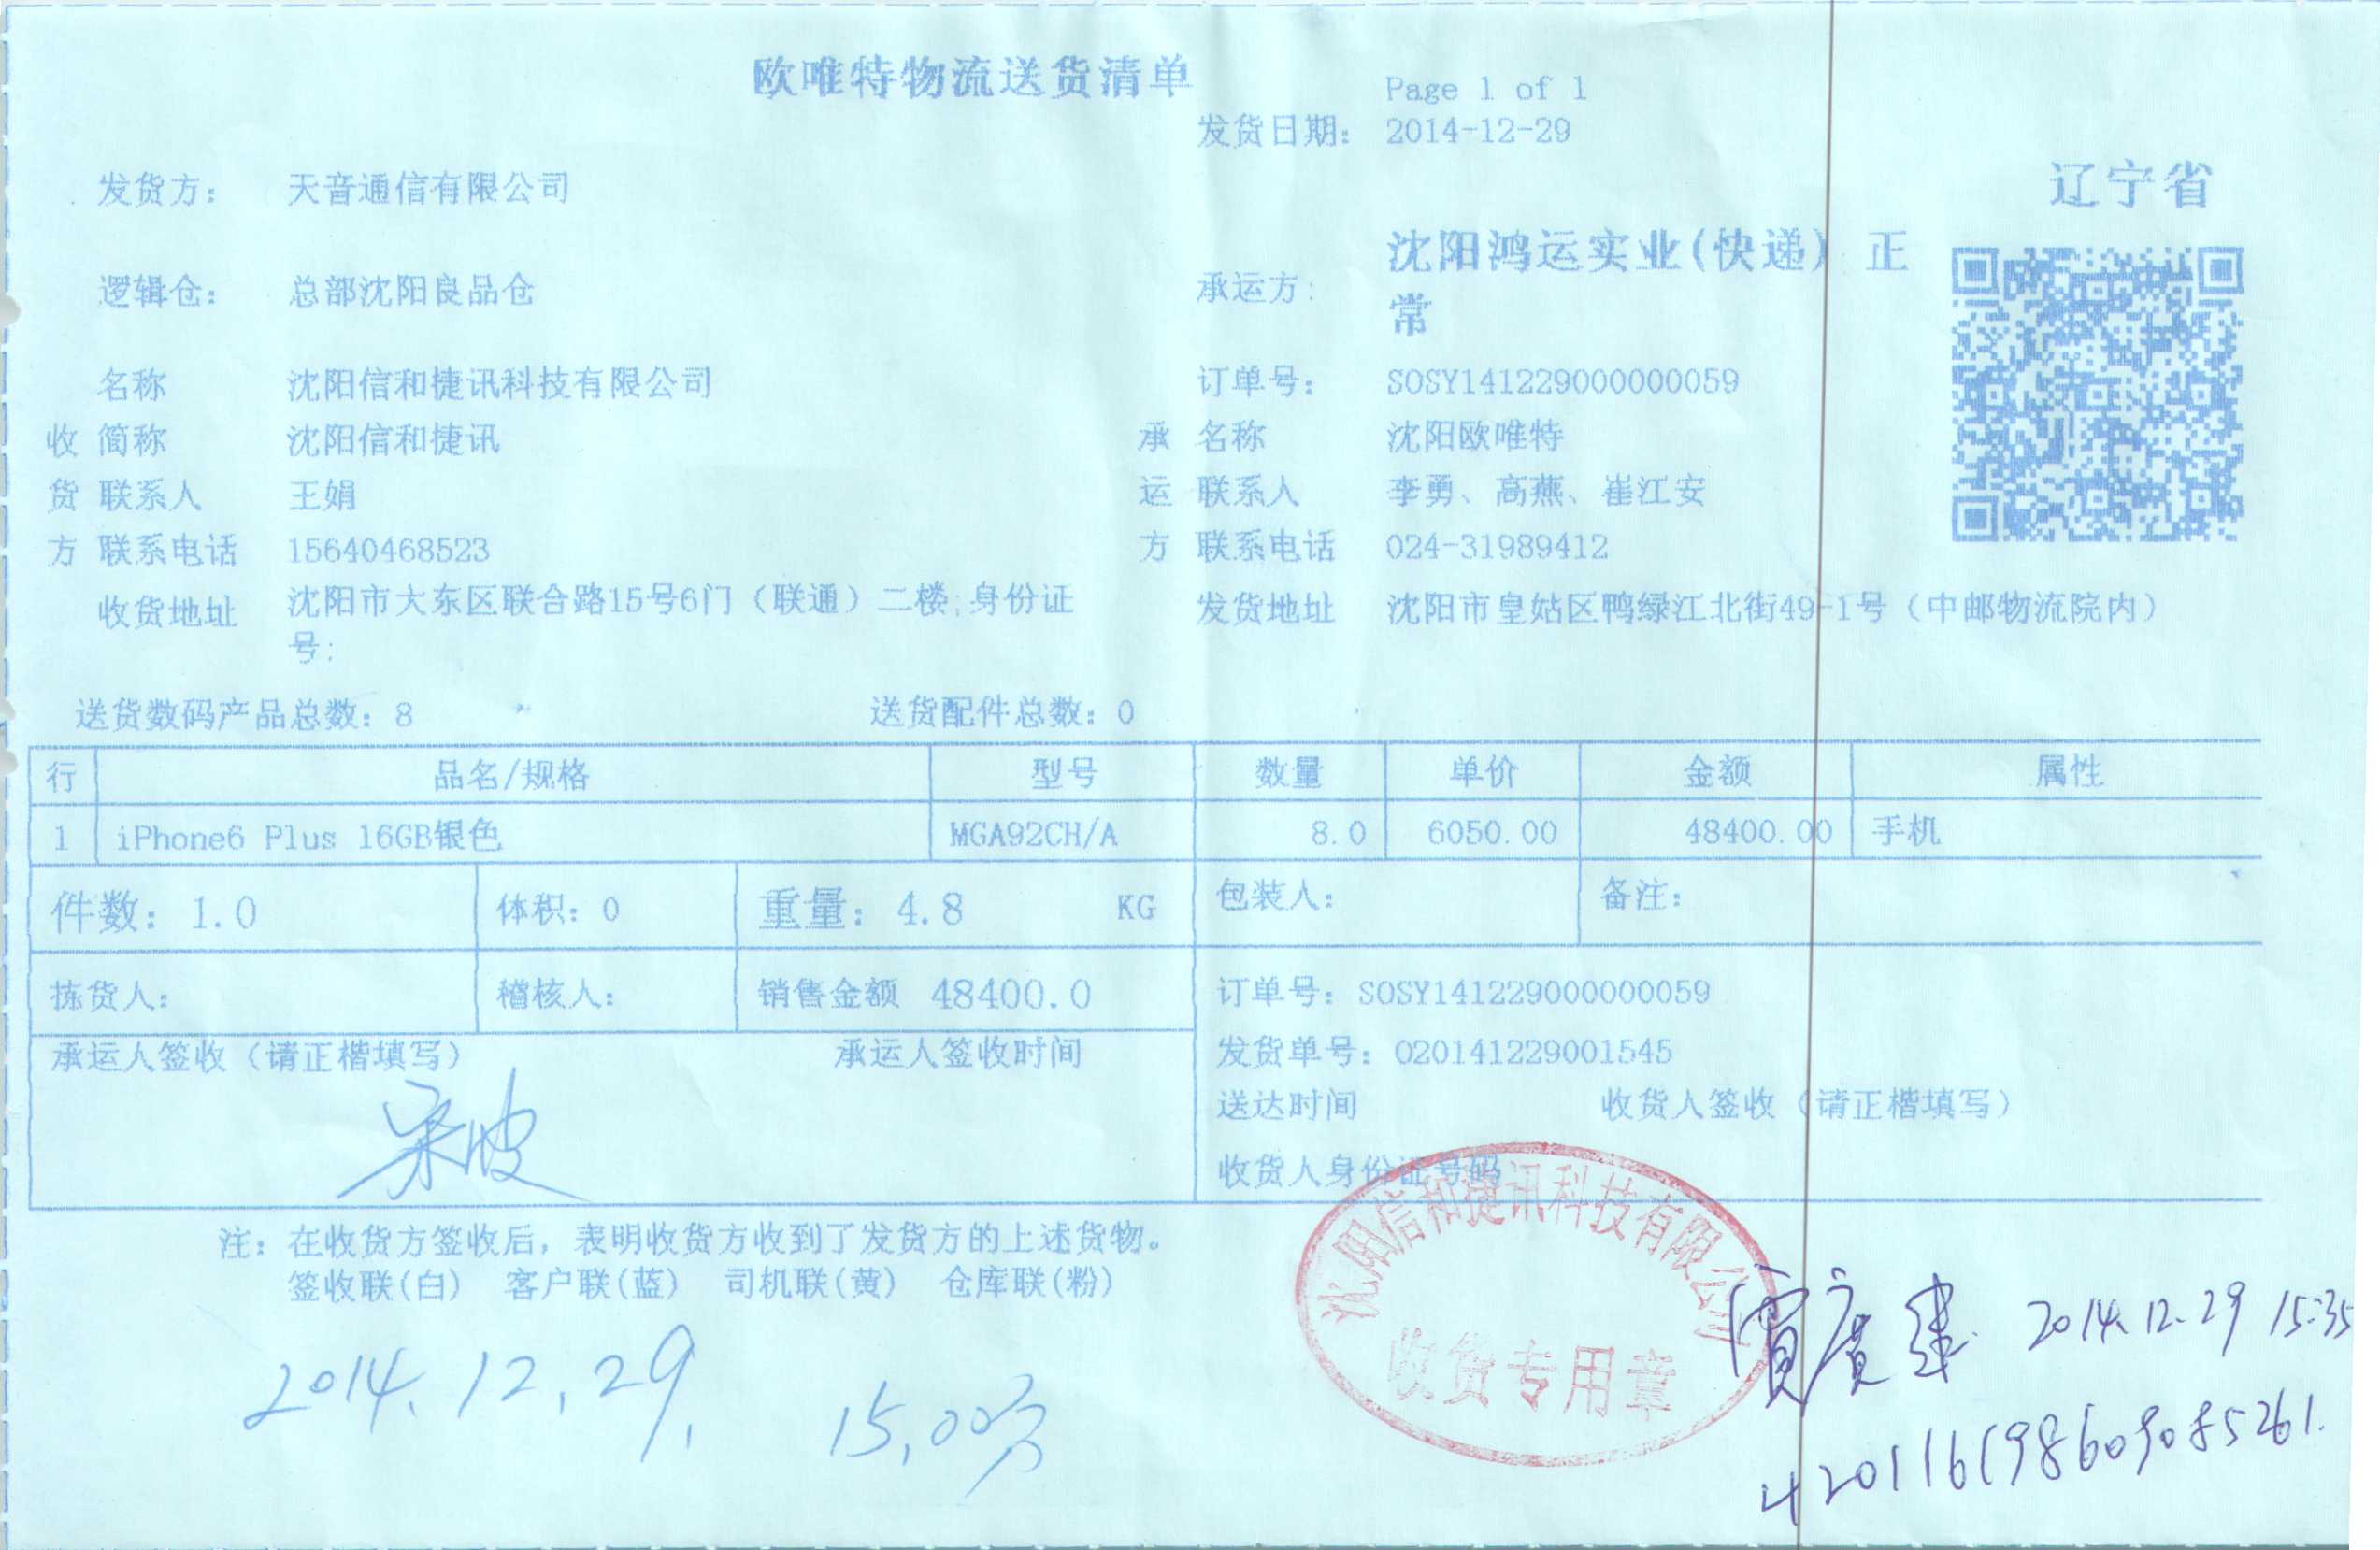 欧唯特物流送货清单
Page 1 of 1
发货日期: 2014-12-29
辽宁省
发货方: 天音通信有限公司
逻辑仓: 总部沈阳良品仓
承运方: 沈阳鸿运实业(快递) 正
常
名称 沈阳信和捷讯科技有限公司
订单号: SOSY141229000000059
收 简称 沈阳信和捷讯
承 名称 沈阳欧唯特
货 联系人 王娟
运 联系人 李勇、高燕、崔江安
方 联系电话 15640468523
方 联系电话 024-31989412
收货地址 沈阳市大东区联合路15号6门（联通）二楼;身份证
号:
发货地址 沈阳市皇姑区鸭绿江北街49-1号（中邮物流院内）
送货数码产品总数: 8 送货配件总数: 0
行 品名/规格 型号 数量 单价 金额 属性
1 iPhone6 Plus 16GB银色 MGA92CH/A 8.0 6050.00 48400.00 手机
件数: 1.0 体积: 0 重量: 4.8 KG 包装人: 备注:
拣货人: 稽核人: 销售金额 48400.0
订单号: SOSY141229000000059
承运人签收（请正楷填写） 承运人签收时间
发货单号: O20141229001545
送达时间 收货人签收（请正楷填写）
收货人身份证号码
注: 在收货方签收后，表明收货方收到了发货方的上述货物。
签收联(白) 客户联(蓝) 司机联(黄) 仓库联(粉)
沈阳信和捷讯科技有限公司
收货专用章
2014.12.29 15:35
2014.12.29.